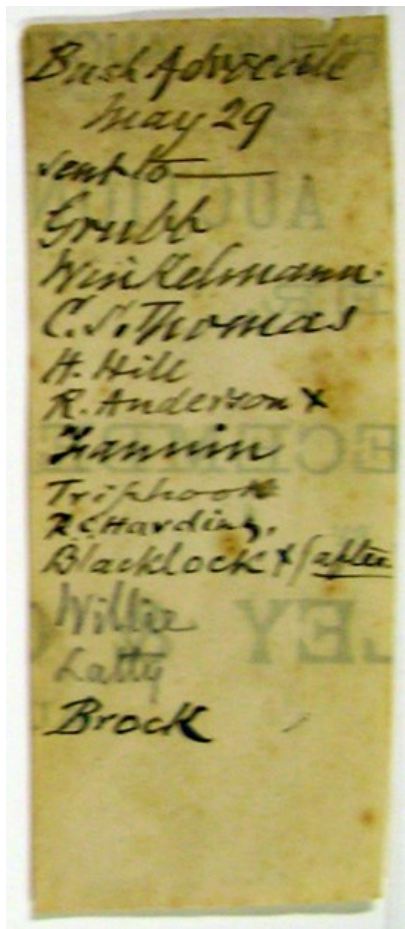 Bush Advocate
May 29
sent to —
Grubb
Winkelmann.
C. S. Thomas
H. Hill
R. Anderson x
Fannin
Triphook
R. C. Harding.
Blacklock x (after
Willie
Latty
Brock